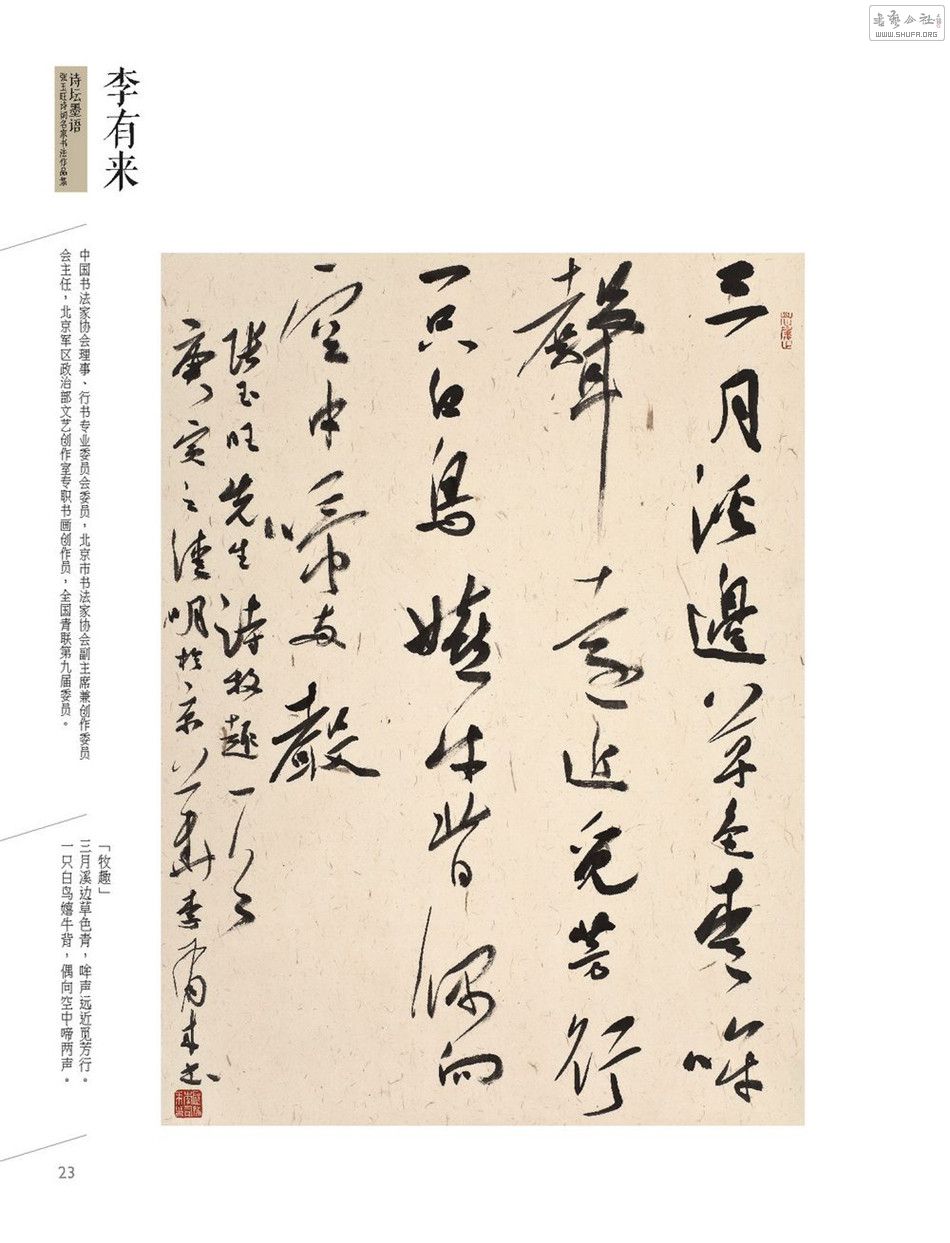 書藝公社
WWW.SHUFA.ORG
李有来
诗坛墨语
张玉旺诗词名家书法作品集
中国书法家协会理事、行书专业委员会委员，北京市书法家协会副主席兼创作委员
会主任，北京军区政治部文艺创作室专职书画创作员，全国青联第九届委员。
「牧趣」
三月溪边草色青，哞声远近觅芳行。
一只白鸟嬉牛背，偶向空中啼两声。
三月溪邊草色青哞
聲遠近覓芳行
一只白鳥嬉牛背偶向
空中啼两聲
張玉旺先生詩牧趣一首
庚寅之清明於京華李有来书
23